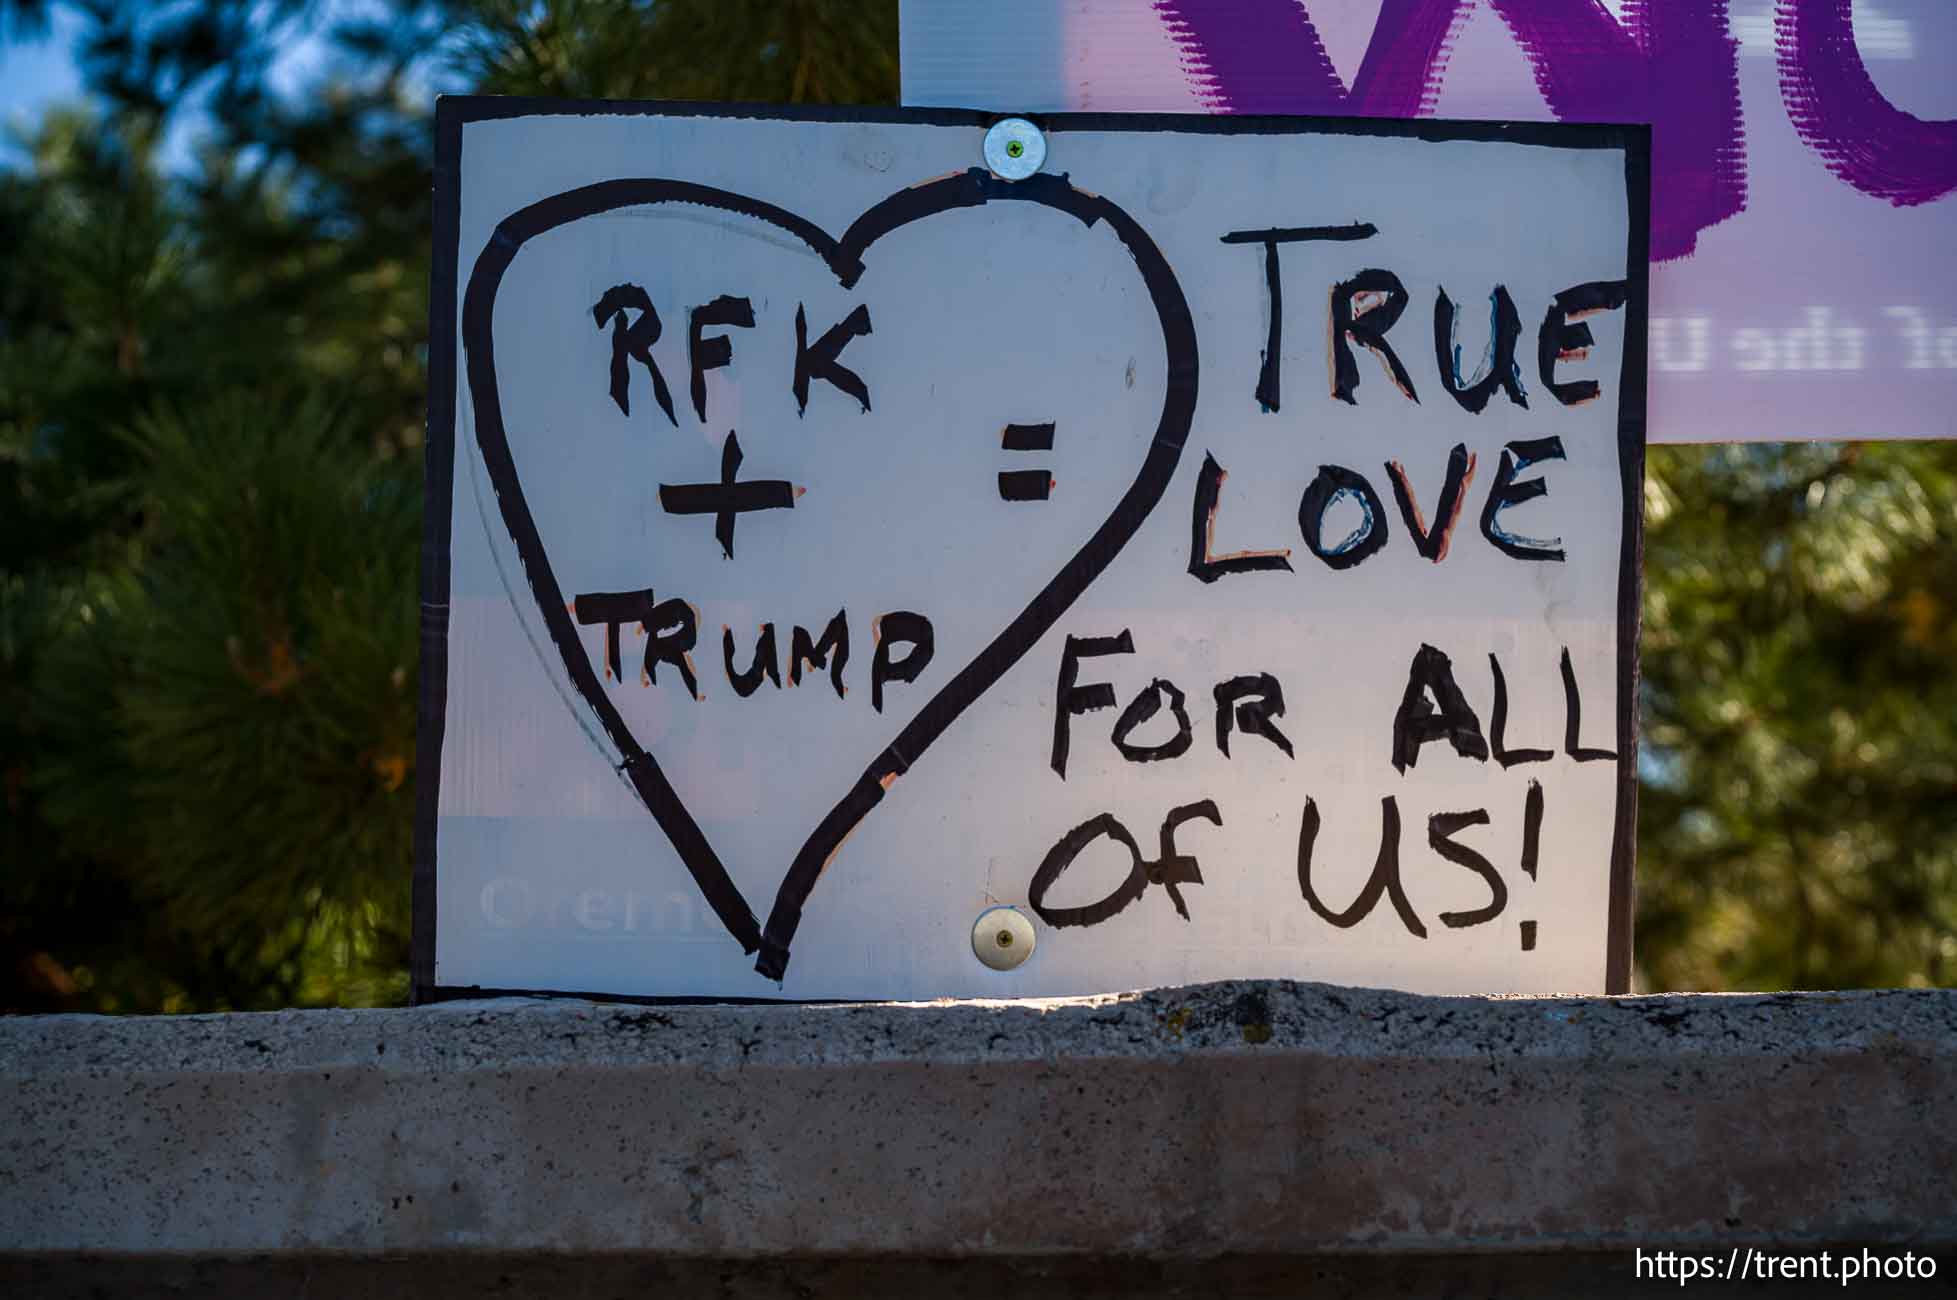 RFK
+
TRUMP
=
TRUE
LOVE
FOR ALL
OF US!
Orem
https://trent.photo